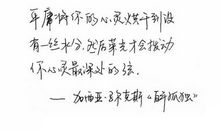 平庸将你的心灵烘干到没
有一丝水分，然后荣光才会拨动
你心灵最深处的弦.
— 加西亚·马尔克斯《百年孤独》